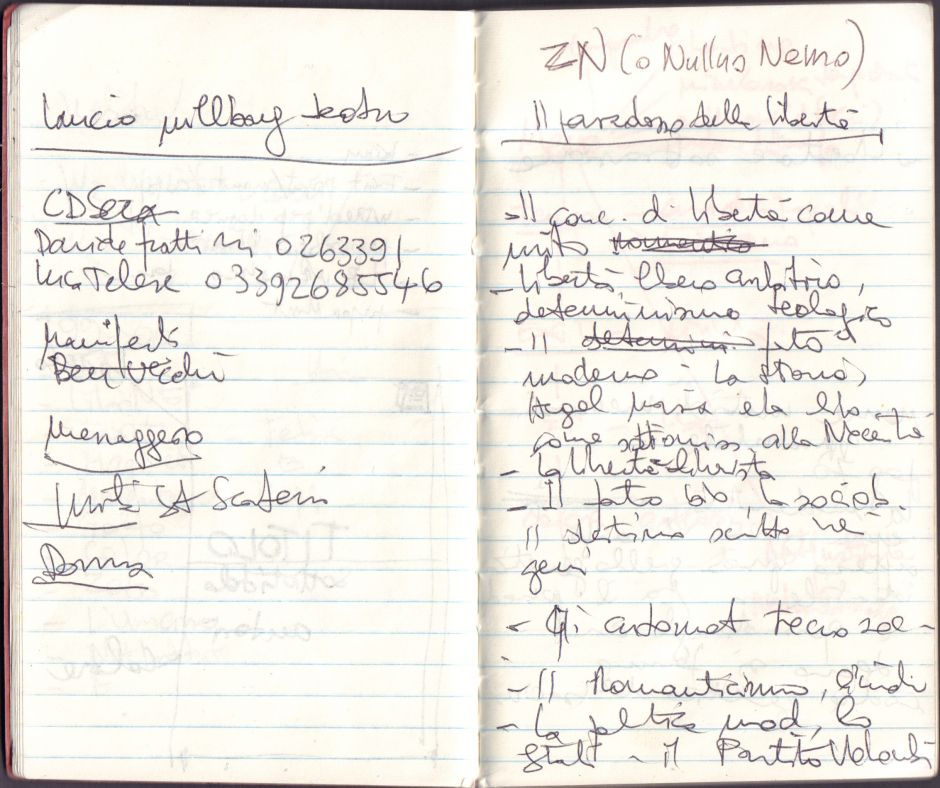 Lancio millbay teatro
CDSera
Davide frattini 0263391
Luca Telese 03392685546
Manifesto
Benvecchi
Messaggero
Unità
Donna
ZN (o Nullus Nemo)
Il paradosso della libertà
- Il conc. di libertà come
mito romantico
- libertà, libero arbitrio,
determinismo teologico
- Il determini fato
moderno - La storia,
Hegel Marx e la
come alla Necessità
- La libertà liberista
- Il fato bio, la sociob.
Il destino scritto nei
geni
- Gli automat tecno soc -
- Il Romanticismo, Gindi
- La politica mod, lo
- il Partito